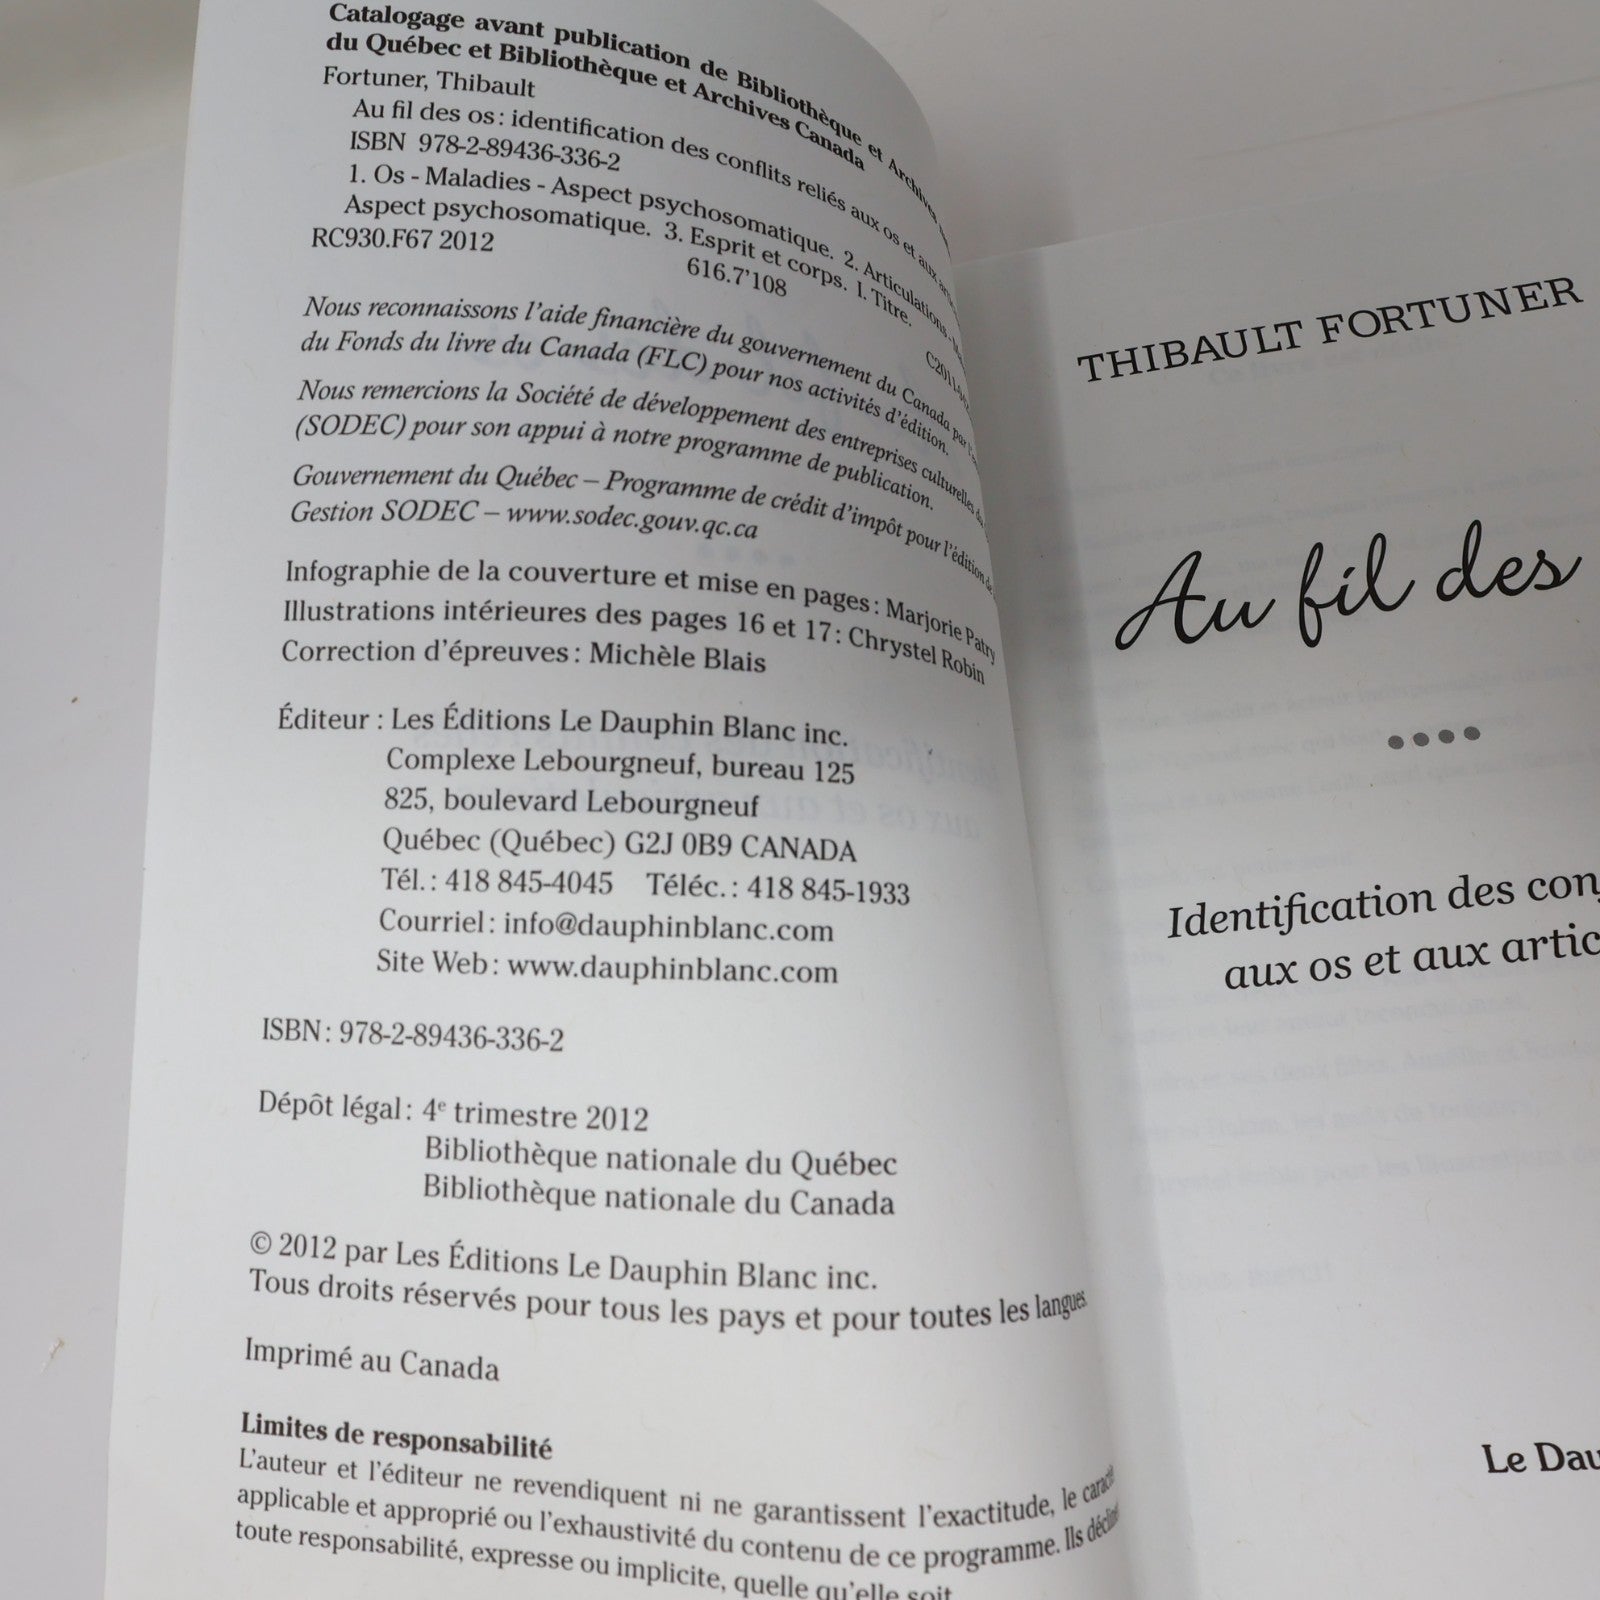 Catalogage avant publication de Bibliothèque et Archives
du Québec et Bibliothèque et Archives Canada
Fortuner, Thibault
Au fil des os : identification des conflits reliés aux os et aux
ISBN 978-2-89436-336-2
1. Os - Maladies - Aspect psychosomatique. 2. Articulations -
Aspect psychosomatique. 3. Esprit et corps. I. Titre.
RC930.F67 2012 616.7'108
Nous reconnaissons l'aide financière du gouvernement du Canada par
du Fonds du livre du Canada (FLC) pour nos activités d'édition.
Nous remercions la Société de développement des entreprises culturelles du
(SODEC) pour son appui à notre programme de publication.
Gouvernement du Québec – Programme de crédit d'impôt pour l'édition de
Gestion SODEC – www.sodec.gouv.qc.ca
Infographie de la couverture et mise en pages : Marjorie Patry
Illustrations intérieures des pages 16 et 17 : Chrystel Robin
Correction d'épreuves : Michèle Blais
Éditeur : Les Éditions Le Dauphin Blanc inc.
Complexe Lebourgneuf, bureau 125
825, boulevard Lebourgneuf
Québec (Québec) G2J 0B9 CANADA
Tél. : 418 845-4045 Téléc. : 418 845-1933
Courriel : info@dauphinblanc.com
Site Web : www.dauphinblanc.com
ISBN : 978-2-89436-336-2
Dépôt légal : 4e trimestre 2012
Bibliothèque nationale du Québec
Bibliothèque nationale du Canada
© 2012 par Les Éditions Le Dauphin Blanc inc.
Tous droits réservés pour tous les pays et pour toutes les langues.
Imprimé au Canada
Limites de responsabilité
L'auteur et l'éditeur ne revendiquent ni ne garantissent l'exactitude, le
applicable et approprié ou l'exhaustivité du contenu de ce programme. Ils
toute responsabilité, expresse ou implicite, quelle qu'elle soit
THIBAULT FORTUNER
Au fil des
Identification des
aux os et aux
Le